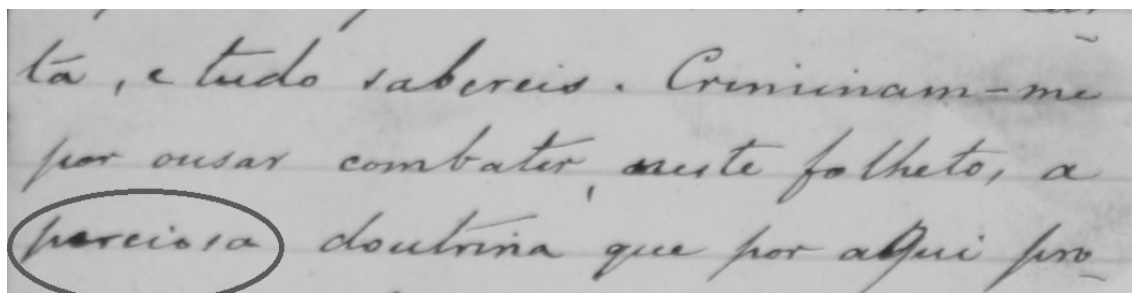 ta, e tudo sabereis. Criminam-me
por ousar combater, neste folheto, a
perciosa doutrina que por aqui pro-